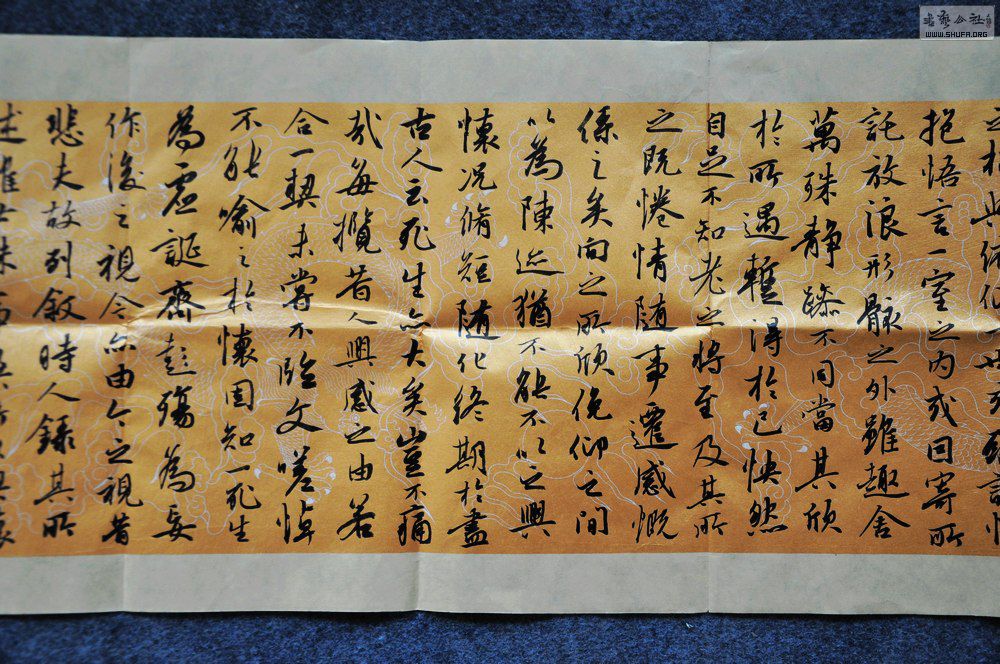 之相與俯仰一世或取諸
抱悟言一室之内或因寄所
託放浪形骸之外雖趣舍
萬殊静躁不同當其欣
於所遇暫得於己怏然
自足不知老之將至及其所
之既惓情随事遷感慨
係之矣向之所欣俛仰之間
以為陳迹猶不能不以之興
懷況脩短随化終期於盡
古人云死生亦大矣豈不痛
哉每攬昔人興感之由若
合一契未嘗不臨文嗟悼
不能喻之於懷固知一死生
為虚誕齊彭殤為妄
作後之視今亦由今之視昔
悲夫故列敘時人録其所
述雖世殊事
書藝公社
WWW.SHUFA.ORG